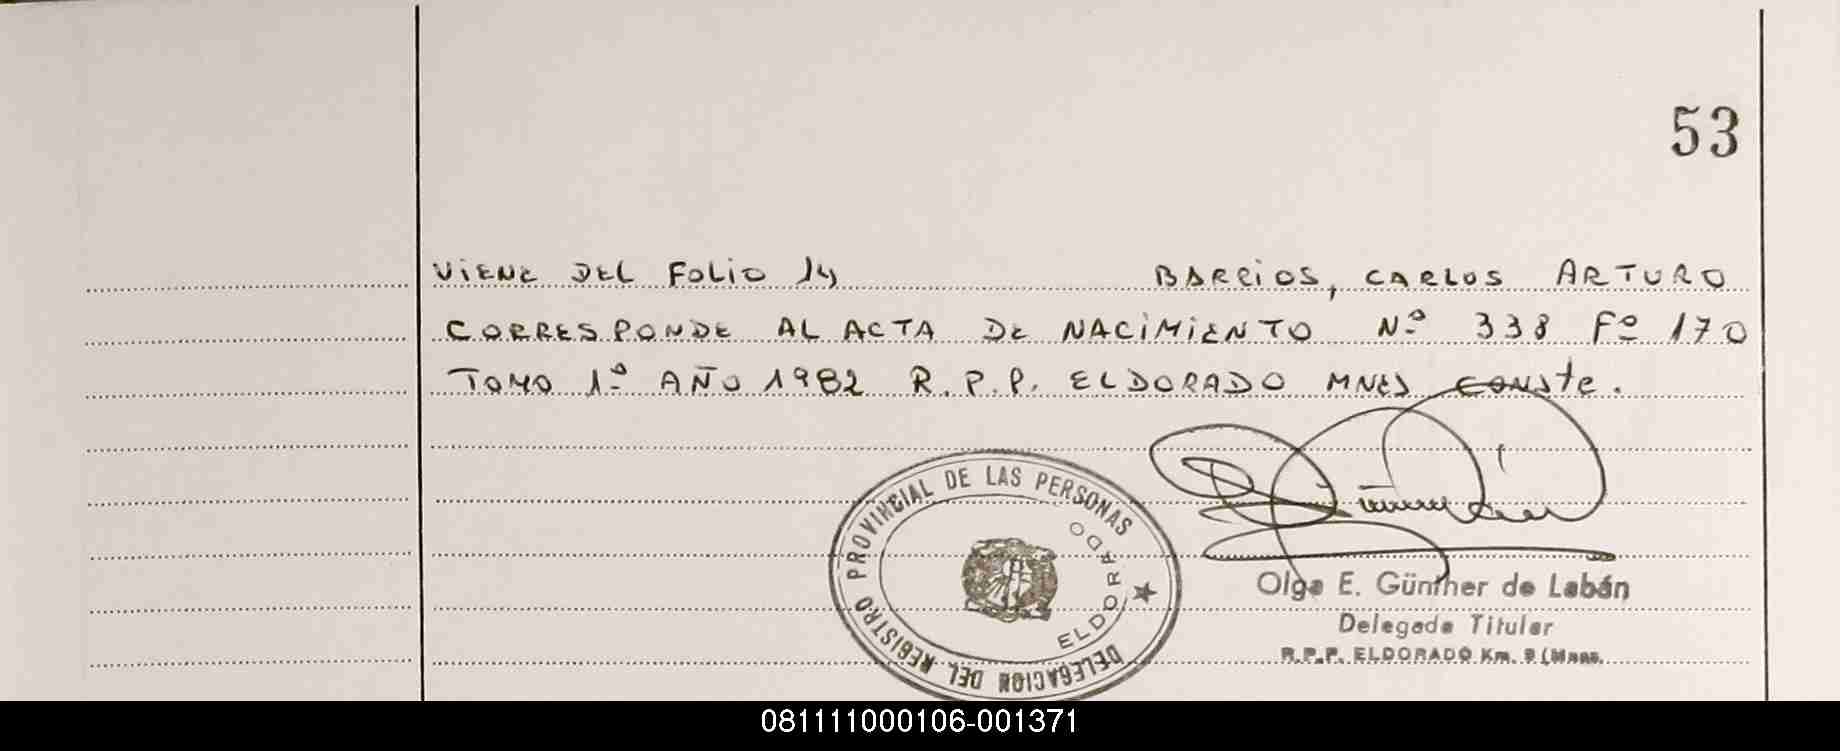 53
VIENE DEL FOLIO 14 BARRIOS, CARLOS ARTURO
CORRESPONDE AL ACTA DE NACIMIENTO Nº 338 Fº 170
TOMO 1º AÑO 1982 R.P.P. ELDORADO MNES CONSTE.
DELEGACION DEL REGISTRO PROVINCIAL DE LAS PERSONAS
ELDORADO
Olga E. Günther de Labán
Delegada Titular
R.P.P. ELDORADO Km. 9 (Mnes.
081111000106-001371